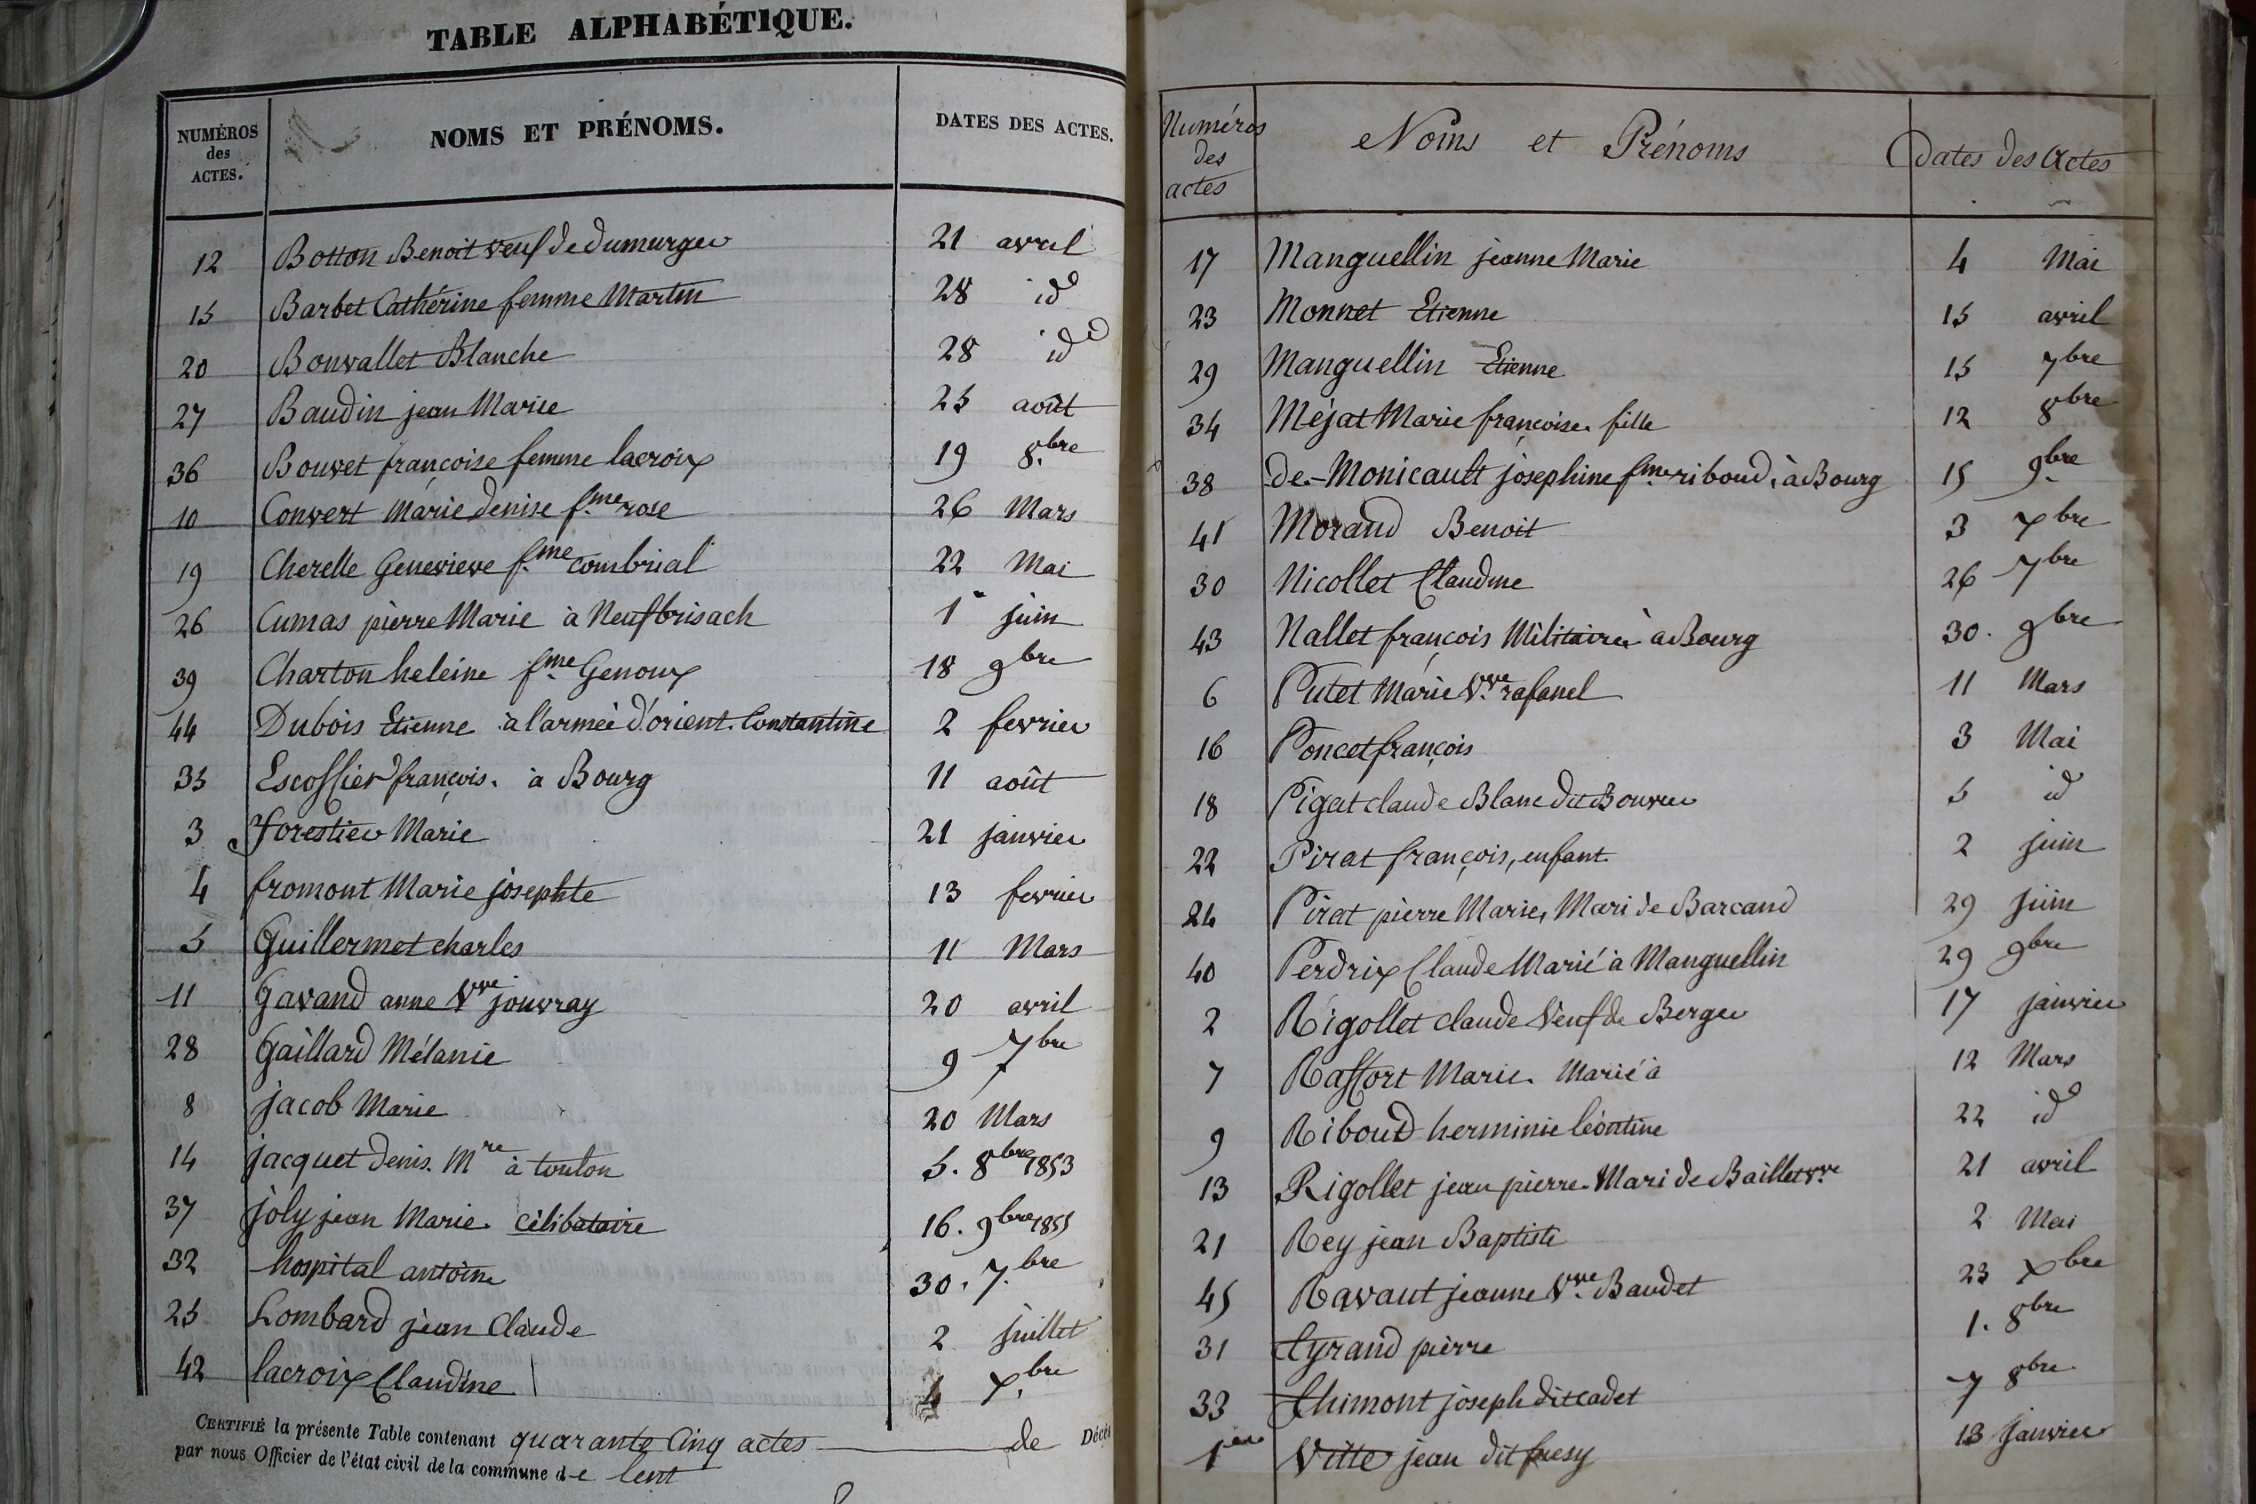 TABLE ALPHABÉTIQUE.
NUMÉROS des ACTES. NOMS ET PRÉNOMS. DATES DES ACTES.
12 Botton Benoit veuf de dumurger 21 avril
15 Barbet Cathérine femme Martin 28 id
20 Bonvallet Blanche 28 id
27 Baudin jean Marie 25 août
36 Bouvet françoise femme lacroix 19 8.bre
10 Convert Marie denise f.me rose 26 Mars
19 Cherelle Genevieve f.me combrial 22 Mai
26 Cumas pierre Marie à Neufbrisach 1er juin
39 Charton heleine f.me Genoux 18 9bre
44 Dubois Etienne à l'armée d'orient. Constantine 2 fevrier
35 Escoffier françois. à Bourg 11 août
3 forestier Marie 21 janvier
4 fromont Marie josephte 13 fevrier
5 Guillermet charles 11 Mars
11 Gavand anne Vve jouvray 20 avril
28 Gaillard Mélanie 9 7bre
8 jacob Marie 20 Mars
14 jacquet denis. Mre à toulon 5. 8bre 1853
37 joly jean Marie. célibataire 16. 9bre 1855
32 hospital antoine 30. 7.bre
25 Lombard jean Claude 2 juillet
42 lacroix Claudine 4 Xbre
CERTIFIÉ la présente Table contenant quarante Cinq actes de Décès
par nous Officier de l'état civil de la commune de lent
Numéros des actes Noms et Prénoms Dates des Actes
17 Manguellin jeanne Marie 4 Mai
23 Monnet Etienne 15 avril
29 Manguellin Etienne 15 7bre
34 Méjat Marie françoise. fille 12 8bre
38 de-Monicault josephine f.me riboud, à Bourg 15 9bre
41 Morand Benoit 3 Xbre
30 Nicollet Claudine 26 7bre
43 Nallet françois Militaire à Bourg 30. 9bre
6 Putet Marie V.ve rafanel 11 Mars
16 Poncet françois 3 Mai
18 Pigat claude Blanc dit Bouvier 5 id
22 Pirat françois, enfant. 2 juin
24 Pirat pierre Marie, Mari de Barcand 29 juin
40 Perdrix Claude Marié à Manguellin 29 9bre
2 Rigollet claude Veuf de Berger 17 janvier
7 Raffort Marie. Marié à 12 Mars
9 Riboud herminie léontine 22 id
13 Rigollet jean pierre. Mari de Baillet vve 21 avril
21 Rey jean Baptiste 2 Mai
45 Ravaut jeanne V.ve Baudet 23 Xbre
31 tyrand pierre 1. 8bre
33 thimont joseph dit cadet 7 8bre
1er Vitte jean dit 13 janvier